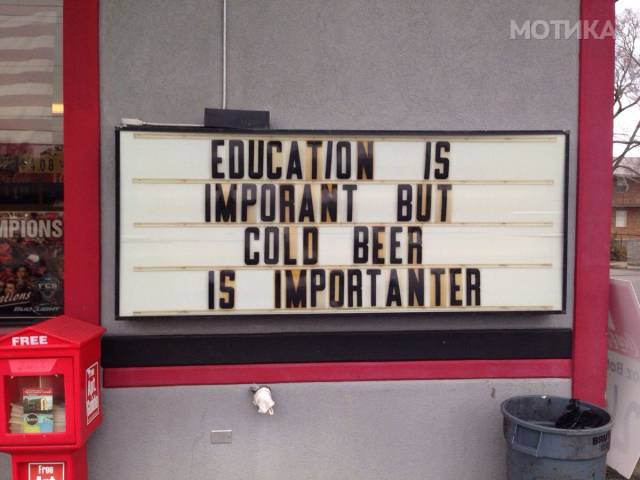 МОТИКА
EDUCATION IS
IMPORANT BUT
COLD BEER
IS IMPORTANTER
MPIONS
BUD LIGHT
FREE
Free